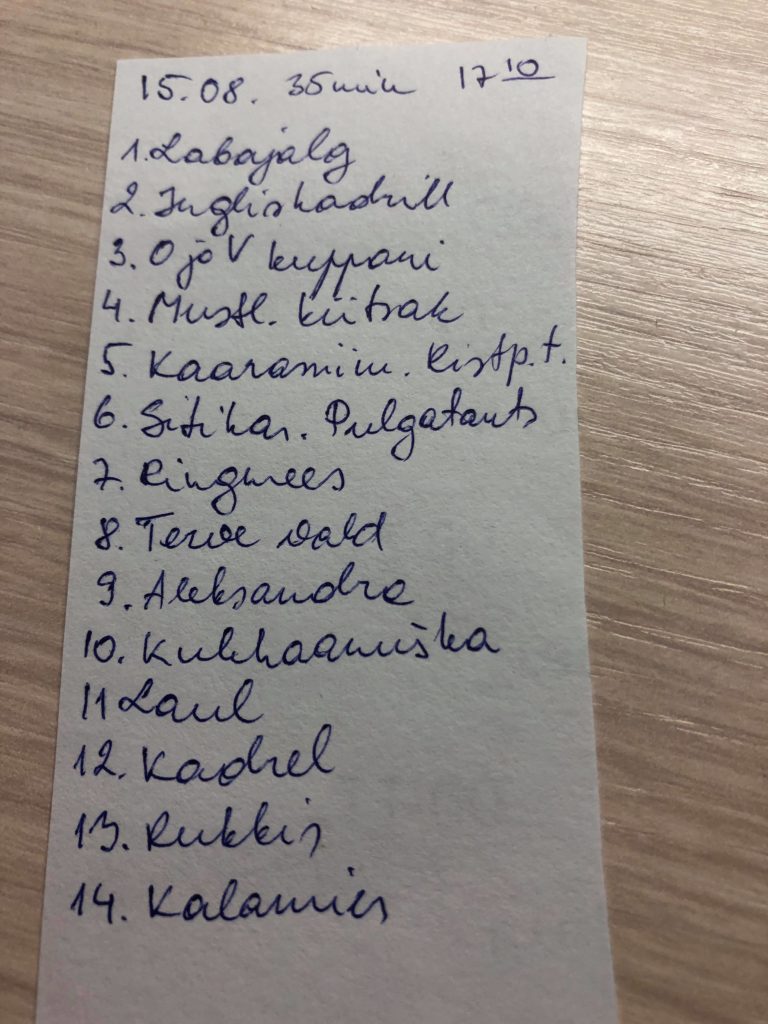 15.08. 35min 17 10
1. Labajalg
2. Ingliskadrill
3. Ojo V kuppari
4. Mustl. kiitsak
5. Kaaramiin. Ristp.t.
6. Sitikas. Pulgatants
7. Ringmees
8. Terve vald
9. Aleksandra
10. Kukhaanuška
11 Laul
12. Kadrel
13. Rukkis
14. Kalamies